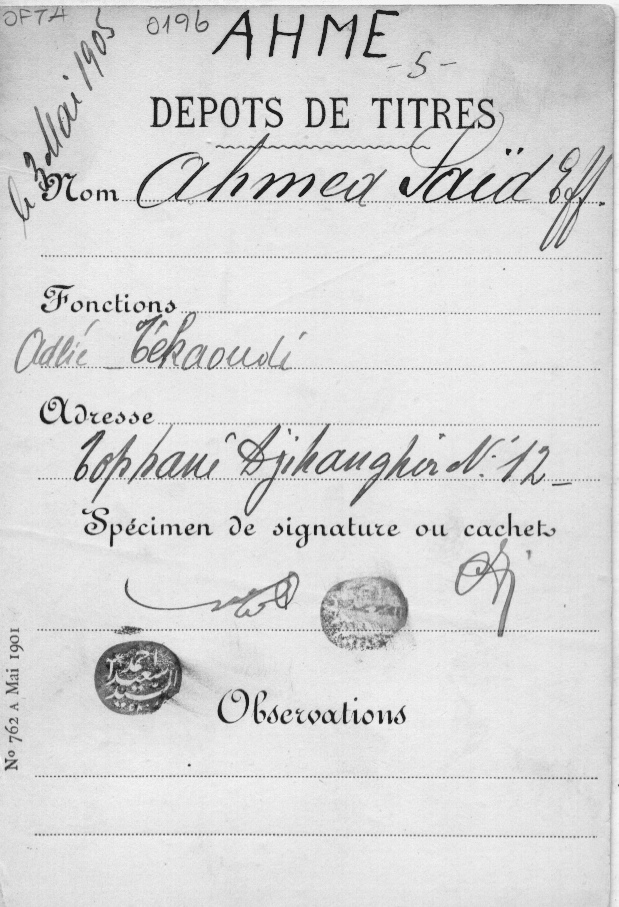 OFTA 0196 AHME
-5-
le 3 Mai 1905
DEPOTS DE TITRES
Nom Ahmed Saïd Eff.
Fonctions
Adlié Tékaoudi
Adresse
Tophané Djihanghir N: 12 -
Spécimen de signature ou cachet
احمد
سعيد
السيد
Observations
Nº 762 A Mai 1901